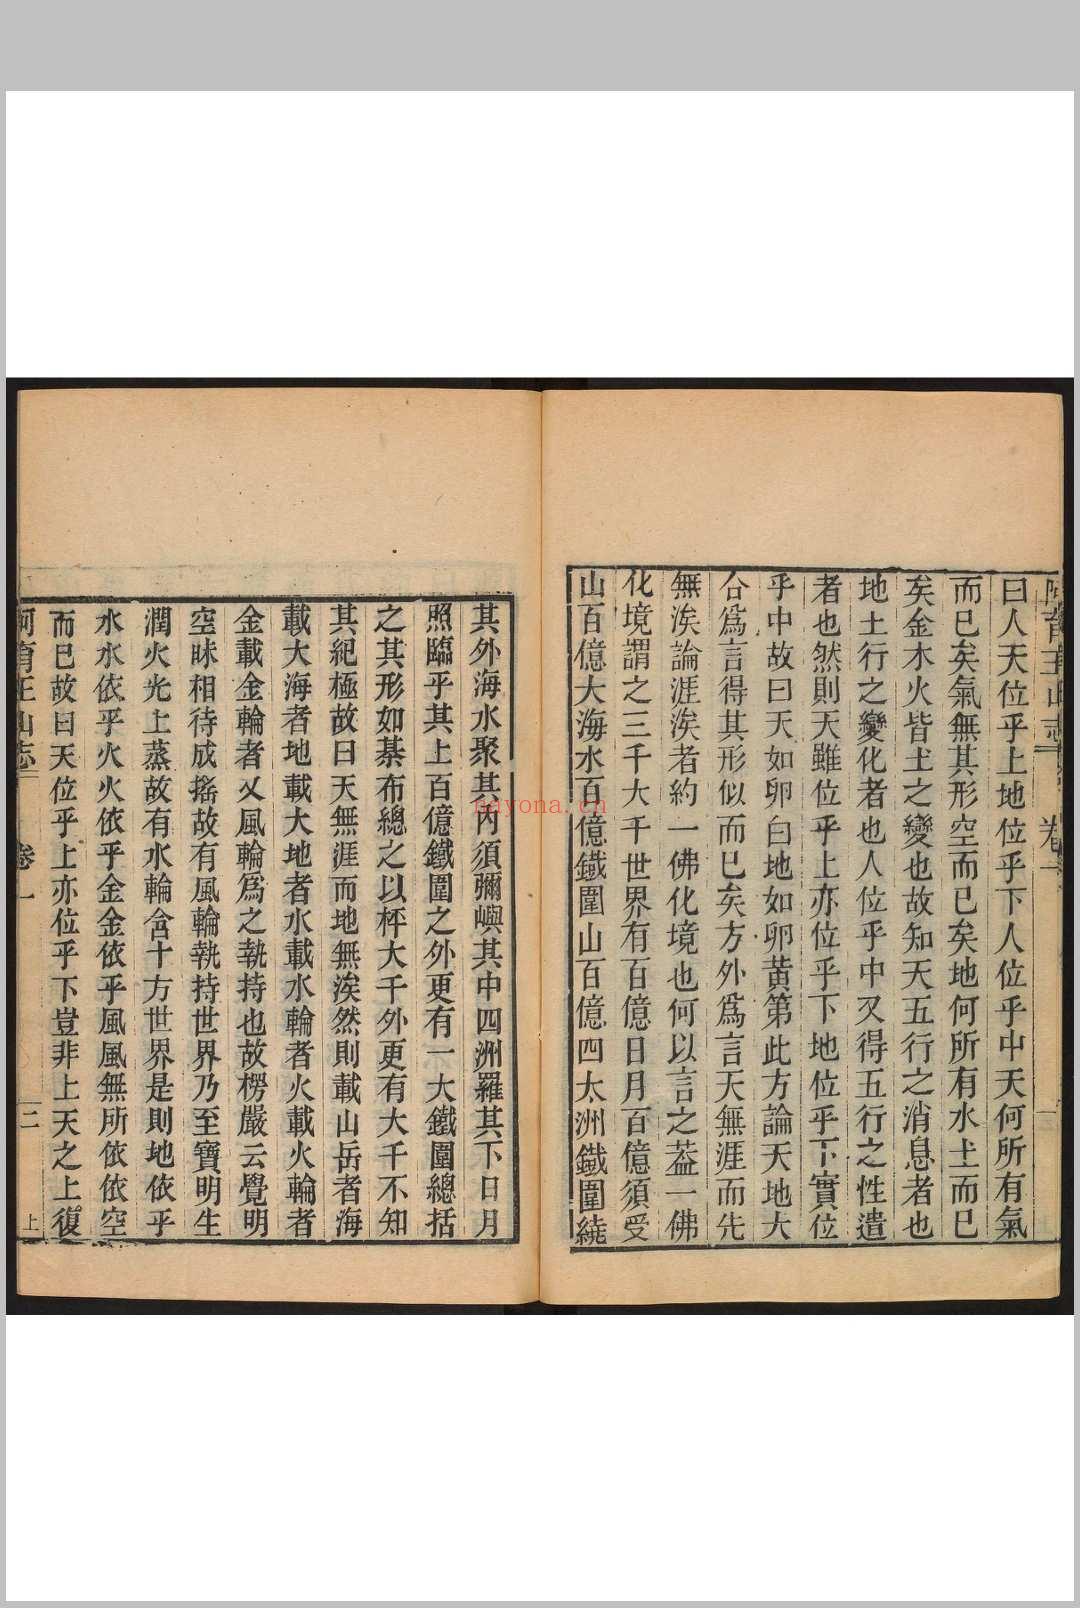 阿育王山志 卷一
曰人天位乎上地位乎下人位乎中天何所有氣
而已矣氣無其形空而已矣地何所有水土而已
矣金木火皆土之變也故知天五行之消息者也
地土行之變化者也人位乎中又得五行之性遣
者也然則天雖位乎上亦位乎下地位乎下實位
乎中故曰天如卵白地如卵黄第此方論天地大
合爲言得其形似而已矣方外爲言天無涯而先
無涘論涯涘者約一佛化境也何以言之葢一佛
化境謂之三千大千世界有百億日月百億須受
山百億大海水百億鐵圍山百億四大洲鐵圍繞
其外海水聚其內須彌嶼其中四洲羅其下日月
照臨乎其上百億鐵圍之外更有一大鐵圍總括
之其形如棊布總之以枰大千外更有大千不知
其紀極故曰天無涯而地無涘然則載山岳者海
載大海者地載大地者水載水輪者火載火輪者
金載金輪者又風輪爲之執持也故楞嚴云覺明
空昧相待成搖故有風輪執持世界乃至寶明生
潤火光上蒸故有水輪含十方世界是則地依乎
水水依乎火火依乎金金依乎風風無所依依空
而已故曰天位乎上亦位乎下豈非上天之上復
阿育王山志 卷一 二 上
nayona.cn